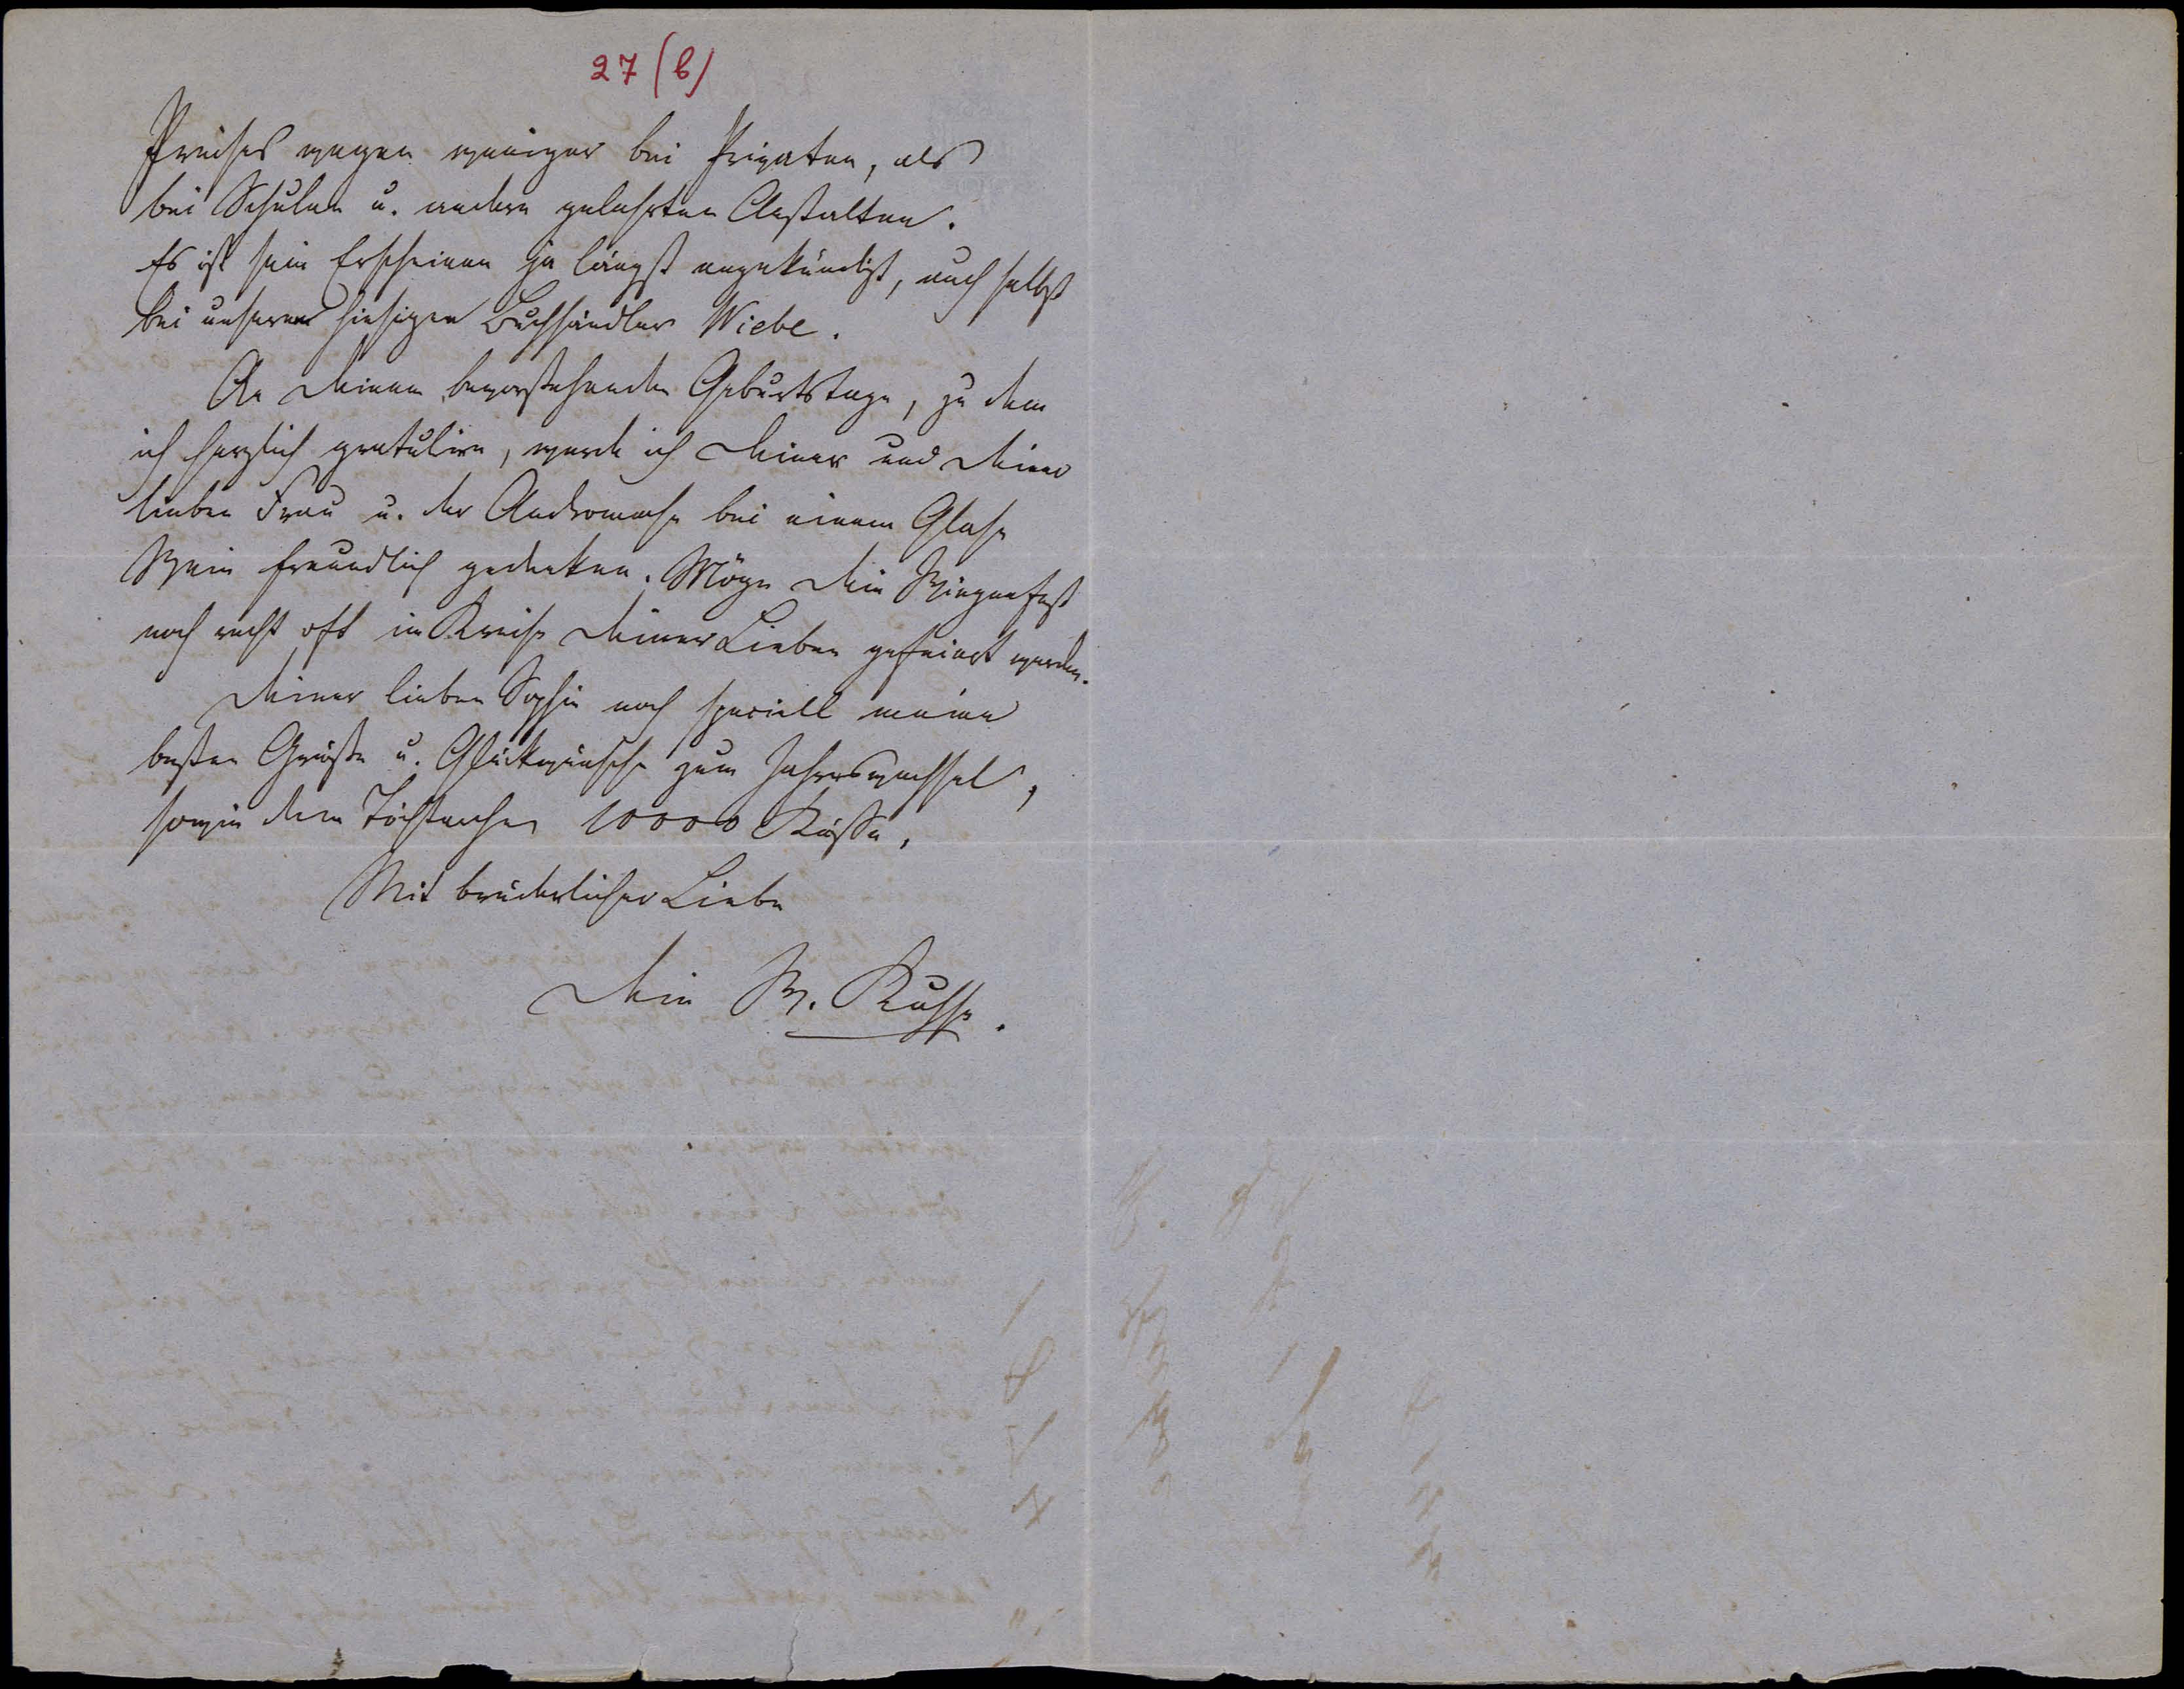 27 (b)
Preises wegen weniger bei Privaten, als
bei Schulen u. andern gelehrten Anstalten.
Es ist sein Erscheinen ja längst angekündigt, auch selbst
bei unserem hiesigen Buchhändler Wiebe.
An Deinem bevorstehenden Geburtstage, zu dem
ich herzlich gratulire, werde ich Deiner und Deiner
lieben Frau u. der Andromache bei einem Glase
Wein freundlich gedenken. Möge Dein Wiegenfest
noch recht oft im Kreise Deiner Lieben gefeiert werden.
Deiner lieben Sophie noch speciell meine
besten Grüße u. Glückwünsche zum Jahreswechsel,
sowie dem Töchterchen 10000 Küsse.
Mit brüderlicher Liebe
Dein W.